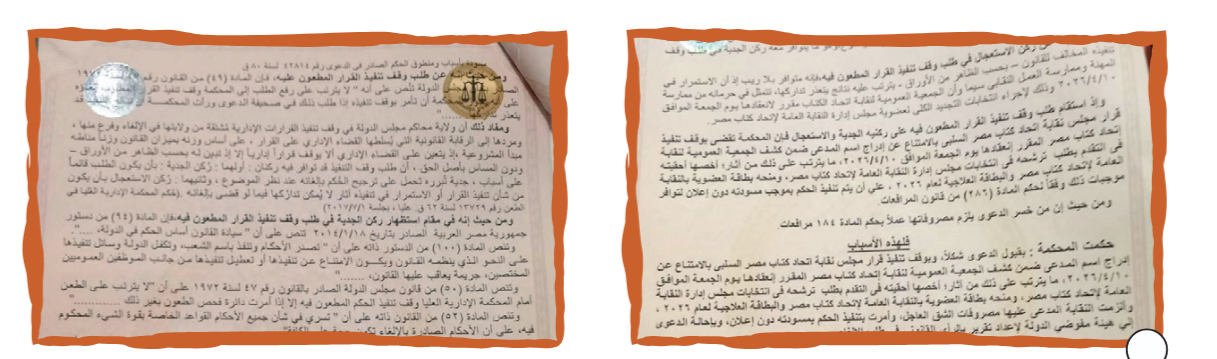 مسودة بأسباب ومنطوق الحكم الصادر في الدعوى رقم ٤٢٨١٤ لسنة ٨٠ ق
ومن حيث إنه عن طلب وقف تنفيذ القرار المطعون عليه، فإن المادة (٤٩) من القانون رقم
الدولة تنص على أنه " لا يترتب على رفع الطلب إلى المحكمة وقف تنفيذ القرار المطلوب إلغاؤه
على المحكمة أن تأمر بوقف تنفيذه إذا طلب ذلك في صحيفة الدعوى ورأت المحكمة قد
يتعذر
ومفاد ذلك أن ولاية محاكم مجلس الدولة في وقف تنفيذ القرارات الإدارية مُشتقة من ولايتها في الإلغاء وفرع منها ،
ومردها إلى الرقابة القانونية التي يُسلطها القضاء الإداري على القرار ، على أساس وزنه بميزان القانون وزناً مناطه
مبدأ المشروعية ،إذ يتعين على القضاء الإداري ألا يوقف قراراً إدارياً إلا إذا تبين له بحسب الظاهر من الأوراق –
ودون المساس بأصل الحق ، أن طلب وقف التنفيذ قد توافر فيه ركنان : أولهما : رُكن الجدية : بأن يكون الطلب قائماً
على أسباب ، جدية تُبرره تحمل على ترجيح الحكم بإلغائه عند نظر الموضوع ، وثانيهما : رُكن الاستعجال بأن يكون
من شأن تنفيذ القرار أو الاستمرار في تنفيذه آثار لا يُمكن تداركها فيما لو قضي بإلغائه .(حكم المحكمة الإدارية العليا في
الطعن رقم ١٣٧٢٩ لسنة ٦٢ ق. عليا ، بجلسة ٢٠١٧/٧/١)
ومن حيث إنه في مقام استظهار ركن الجدية في طلب وقف تنفيذ القرار المطعون فيه،فإن المادة (٩٤) من دستور
جمهورية مصر العربية الصادر بتاريخ ٢٠١٤/١/١٨ تنص على أن " سيادة القانون أساس الحكم في الدولة، ....".
وتنص المادة (١٠٠) من الدستور ذاته على أن " تصدر الأحكام وتنفذ باسم الشعب، وتكفل الدولة وسائل تنفيذها
على النحو الذي ينظمه القانون ويكون الامتناع عن تنفيذها أو تعطيل تنفيذها من جانب الموظفين العموميين
المختصين، جريمة يعاقب عليها القانون، ......"
وتنص المادة (٥٠) من قانون مجلس الدولة الصادر بالقانون رقم ٤٧ لسنة ١٩٧٢ على أن "لا يترتب على الطعن
أمام المحكمة الإدارية العليا وقف تنفيذ الحكم المطعون فيه إلا إذا أمرت دائرة فحص الطعون بغير ذلك ............"
وتنص المادة (٥٢) من القانون ذاته على أن " تسري في شأن جميع الأحكام القواعد الخاصة بقوة الشيء المحكوم
فيه، على أن الأحكام الصادرة بالإلغاء تكون حجة على الكافة"
ركن الاستعجال في طلب وقف تنفيذ القرار المطعون فيه،فإنه متوافر بلا ريب إذ أن الاستمرار في
تنفيذه المخالف للقانون – بحسب الظاهر من الأوراق - يترتب عليه نتائج يتعذر تداركها، تتمثل في حرمانه من ممارسة
المهنة وممارسة العمل النقابي سيما وأن الجمعية العمومية لنقابة اتحاد الكتاب مقرر لانعقادها يوم الجمعة الموافق
٢٠٢٦/٤/١٠ وذلك لإجراء انتخابات التجديد الكلي لعضوية مجلس إدارة النقابة العامة لإتحاد كتاب مصر.
وإذ استقام طلب وقف تنفيذ القرار المطعون فيه على ركنيه الجدية والاستعجال فإن المحكمة تقضي بوقف تنفيذ
قرار مجلس نقابة اتحاد كتاب مصر السلبي بالامتناع عن إدراج اسم المدعى ضمن كشف الجمعية العمومية لنقابة
إتحاد كتاب مصر المقرر إنعقادها يوم الجمعة الموافق ٢٠٢٦/٤/١٠، ما يترتب على ذلك من آثار؛ أخصها أحقيته
في التقدم بطلب ترشحه في انتخابات مجلس إدارة النقابة العامة لإتحاد كتاب مصر، ومنحه بطاقة العضوية بالنقابة
العامة لإتحاد كتاب مصر والبطاقة العلاجية لعام ٢٠٢٦ ، على أن يتم تنفيذ الحكم بموجب مسودته دون إعلان لتوافر
موجبات ذلك وفقاً لحكم المادة (٢٨٦) من قانون المرافعات.
ومن حيث إن من خسر الدعوى يلزم مصروفاتها عملاً بحكم المادة ١٨٤ مرافعات.
فلهذه الأسباب
حكمت المحكمة : بقبول الدعوى شكلاً، وبوقف تنفيذ قرار مجلس نقابة اتحاد كتاب مصر السلبي بالامتناع عن
إدراج اسم المدعى ضمن كشف الجمعية العمومية لنقابة إتحاد كتاب مصر المقرر إنعقادها يوم الجمعة الموافق
٢٠٢٦/٤/١٠، ما يترتب على ذلك من آثار؛ أخصها أحقيته في التقدم بطلب ترشحه في انتخابات مجلس إدارة النقابة
العامة لإتحاد كتاب مصر، ومنحه بطاقة العضوية بالنقابة العامة لإتحاد كتاب مصر والبطاقة العلاجية لعام ٢٠٢٦ ،
وألزمت النقابة المدعى عليها مصروفات الشق العاجل، وأمرت بتنفيذ الحكم بمسودته دون إعلان، وبإحالة الدعوى
إلى هيئة مفوضي الدولة لإعداد تقرير بالرأي القانوني في طلب الإلغاء